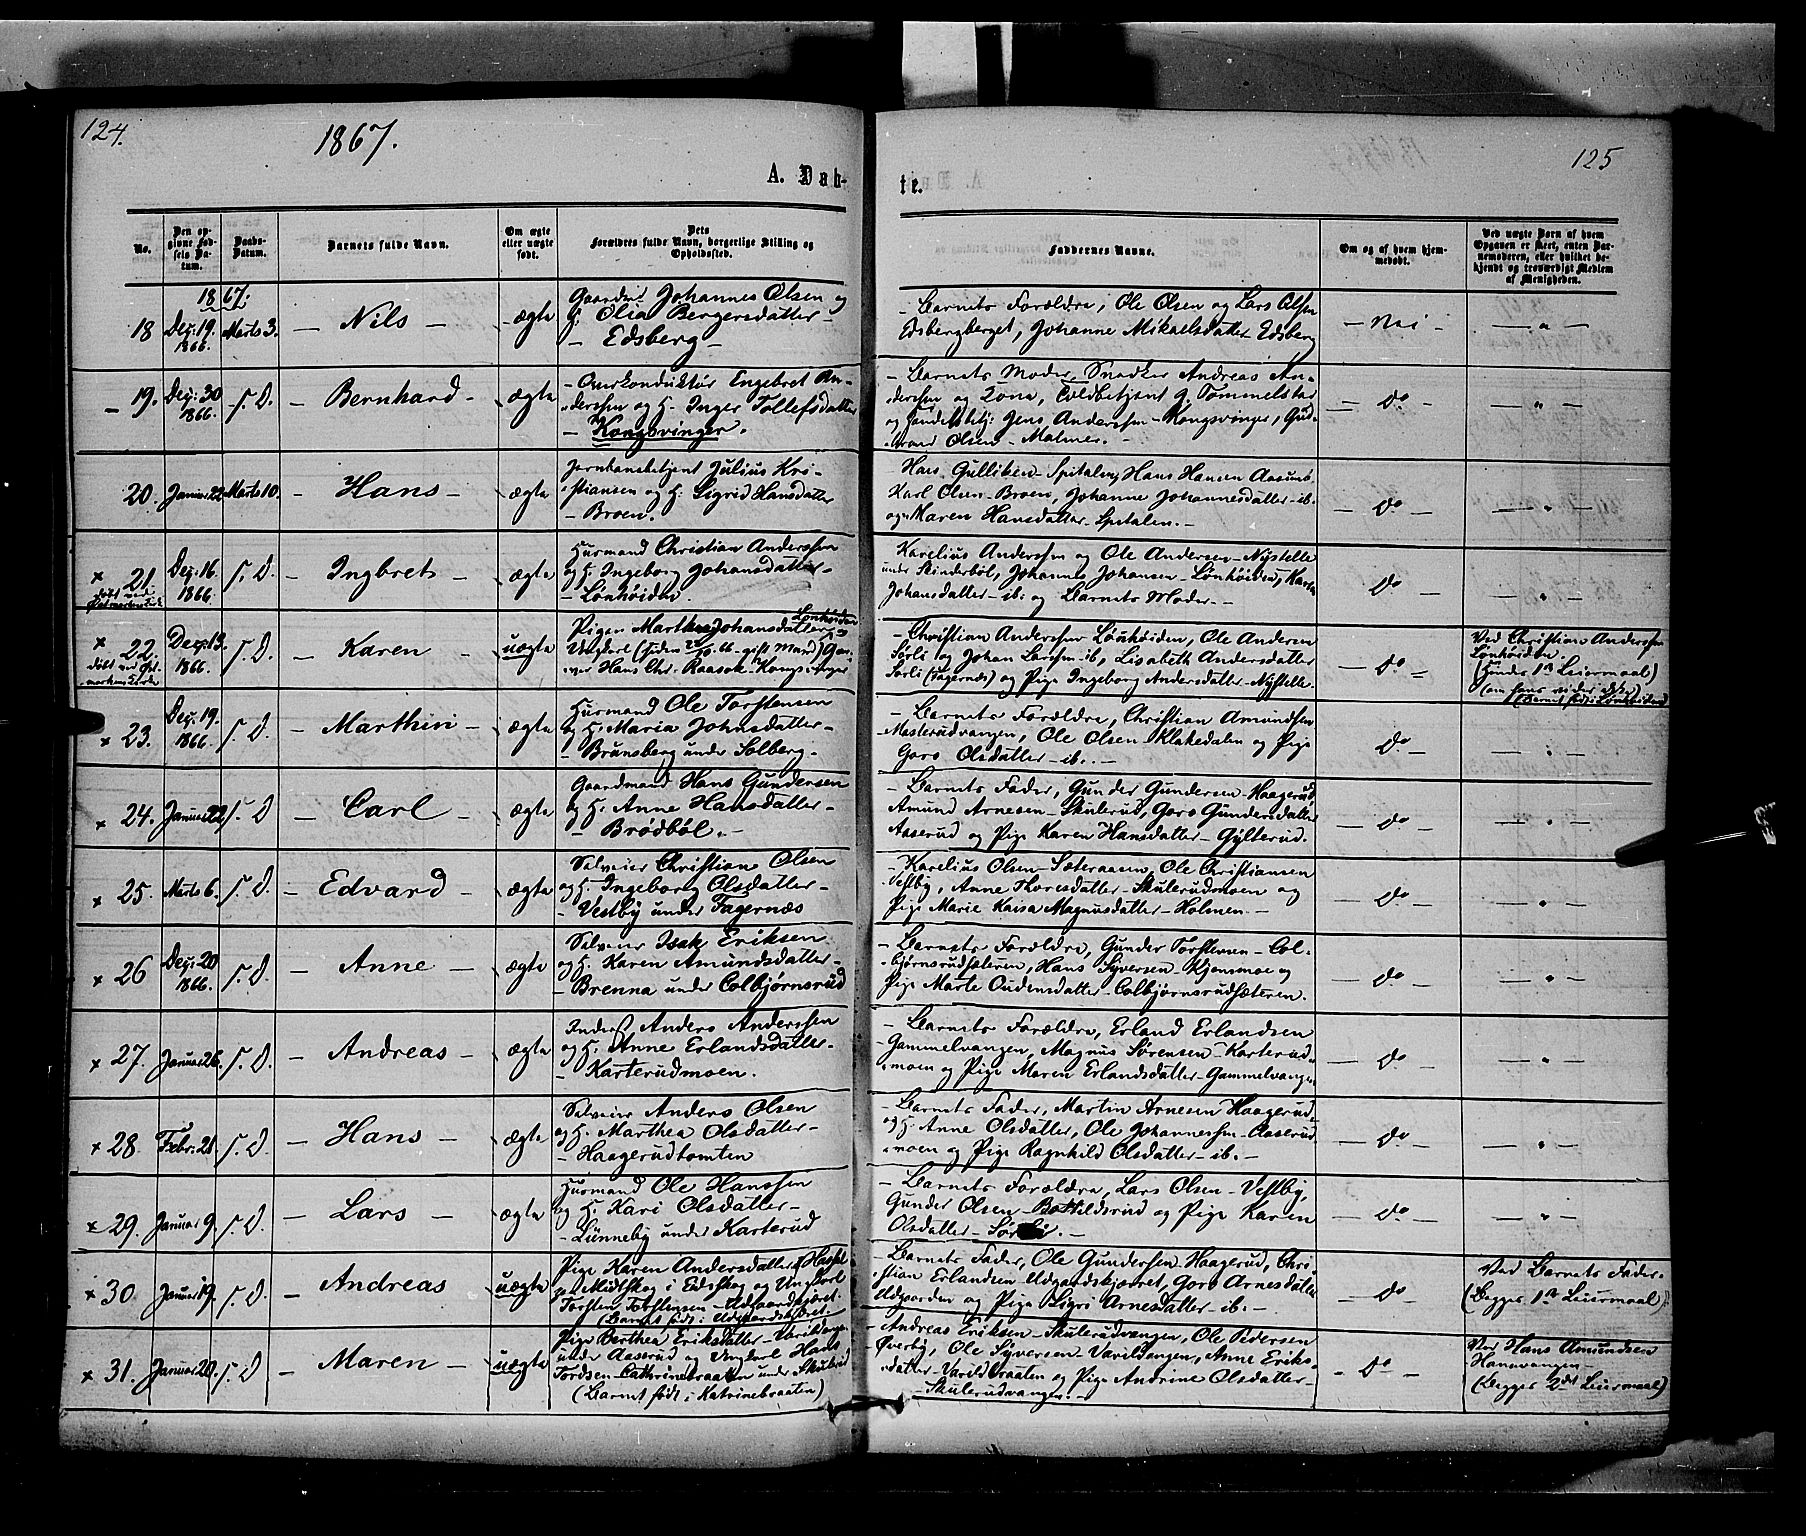 124.
1867.
A. Døb-
te.
125
No.
Den opgivne Fødsels Datum.
Daabs-Datum.
Barnets fulde Navn.
Om ægte eller uægte født.
Dets Forældres fulde Navn, borgerlige Stilling og Opholdssted.
Faddernes Navne.
Om og af hvem hjemmedøbt.
Ved uægte Børn af hvem Opgaven er skeet, enten Barnemoderen, eller hvilket bekjendt og troværdigt Medlem af Menigheden.
1867:
18 Dec: 19. 1866. Marts 3. – Nils – ægte
Johannes Olsen og
H. Olia Bergersdatter –
– Edsberg –
– Barnets Forældre, Ole Olsen og Lars Olsen
Edsbergberget, Johanne Mikaelsdatter Edsberg
– Nei – – " –
19. Dec: 30 1866. s. D. – Bernhard – ægte
– Overkonduktør Engebret An-
derssen og H. Inger Tollefsdatter
– Kongsvinger.
– Barnets Moder, Snedker Andreas An-
derssen og Kone, Toldbetjent G. Tommelstad
og Handelsbetj: Jens Anderssen – Kongsvinger, Gud-
brand Olsen – Malmer. –
– do – – " –
20. Januar 22 Marts 10. – Hans – ægte
Jernbanebetjent Julius Kri-
stiansen og H. Sigrid Hansdatter
– Broen.
Hans Gulliksen – Spitalen, Hans Hansen Aasum
Karl Olsen – Broen, Johanne Johannesdatter – ib.
og Maren Hansdatter – Spitalen. –
– do – – " –
× 21. Dec: 16. 1866. s. D. – Ingbret – ægte
døbt ved
Østmarkens Kirke
Husmand Christian Anderssen
og H. Ingeborg Johansdatter –
– Lønhøiden
Karelius Anderssen og Ole Andersen – Nystelle
under Skinderbøl, Johannes Johansen – Lønhøiden, Karen
Johansdatter – ib: og Barnets Moder –
do " –
× 22. Dec: 13. 1866. s. D. – Karen – uægte
døbt ved Øst-
markens Kirke
Pigen Marthe Johansdatter Lønhøiden og
Ungkarl (siden gift Mand) Gar-
ver Hans Chr. Raasok – Kongsvinger
– Christian Anderssen Lønhøiden, Ole Andersen
Sørli og Johan Larssen – ib, Lisabeth Andersdatter
Sørli (Fagernæs) og Pige Ingeborg Andersdatter – Nystelle
– do –
Ved Christian Anderssen
Lønhøiden.
(Hendes 1ste Leiermaal)
(Barnet født i Lønhøiden)
× 23. Dec: 19. 1866. s. D. – Marthin – ægte
Husmand Ole Torstensen
og H. Maria Johnsdatter –
– Brunsberg under Solberg –
– Barnets Forældre, Christian Amundsen
Masterudvangen, Ole Olsen – Klakedalen og Pige
Goro Olsdatter – ib. –
do – "
× 24. Januar 22 s. D. – Carl – ægte
Gaardmand Hans Gundersen
og H. Anne Hansdatter –
– Brødbøl. –
– Barnets Fader, Gunder Gundersen – Haagerud,
Amund Arnesen – Skulerud, Goro Gundersdatter
Aaserud og Pige Karen Hansdatter – Gylterud.
– do – – " –
× 25. Marts 6. s. D. – Edvard – ægte
Selveier Christian Olsen
og H. Ingeborg Olsdatter –
– Vestby under Fagernæs
– Karelius Olsen – Sæteraasen, Ole Christiansen
Vestby, Anne Thoresdatter – Skulerudmoen og
Pige Marie Kaisa Magnusdatter – Holmen. –
– do – – " –
× 26 Dec: 20 1866. s. D. – Anne – ægte
Selveier Isak Eriksen
og H. Karen Amundsdatter –
– Brenna under Colbjørnsrud
– Barnets Forældre, Gunder Torstensen – Col-
bjørnsrudsæteren, Hans Syversen – Kjensmoe og
Pige Marte Oudensdatter – Colbjørnsrudsæteren.
– do – – " –
× 27. Januar 26. s. D. – Andreas – ægte
Inderst Anders Anderssen
og H. Anne Erlandsdatter –
– Karterudmoen.
– Barnets Forældre, Erland Erlandsen
Gammelvangen, Magnus Sørensen – Karterud-
moen og Pige Maren Erlandsdatter – Gammelvangen
– do – – " –
× 28. Febr: 21. s. D. – Hans – ægte
Selveier Anders Olsen
og H. Marthea Olsdatter –
– Haagerudtomten
– Barnets Fader, Martin Arnesen Haagerud
og H. Anne Olsdatter, Ole Johannessen – Aaserud-
moen og Pige Ragnhild Olsdatter – ib. –
– do – – " –
× 29. Januar 9. s. D. – Lars – ægte
Husmand Ole Hanssen
og H. Kari Olsdatter –
– Lunneby under Karterud
– Barnets Forældre, Lars Olsen – Vestby,
Gunder Olsen – Botildsrud og Pige Karen
Olsdatter –
– do – – " –
× 30. Januar 19. s. D. – Andreas – uægte
Pige Karen Andersdatter
Midtskog i Edskog og Ungkarl
Torsten Torstensen – Udgaardskjæret.
(Barnet født i Udgaardskjæret.)
– Barnets Fader, Ole Gundersen Haagerud, Chri-
stian Erlandsen Udgaardskjærret, Goro Arnesdatter
Udgaarden og Pige Sigri Arnesdatter – ib. –
– do –
Ved Barnets Fader –
(Begges 1ste Leiermaal)
× 31. Januar 20. s. D. – Maren – uægte
Pige Berthea Eriksdatter – Varildvangen
under Aaserud og Ungkarl Hans
Tordsen – Cathrinebraaten under Skulerud
(Barnet født i Katrinebraaten)
– Andreas Eriksen – Skulerudvangen, Ole Pedersen
Øverby, Ole Syversen – Varildvangen, Anne Eriks-
datter – Varildbraaten og Pige Andrine Olsdatter –
– Skulerudvangen. –
– do –
Ved Hans Amundsen
Hansvangen –
(Begges 2det Leiermaal)